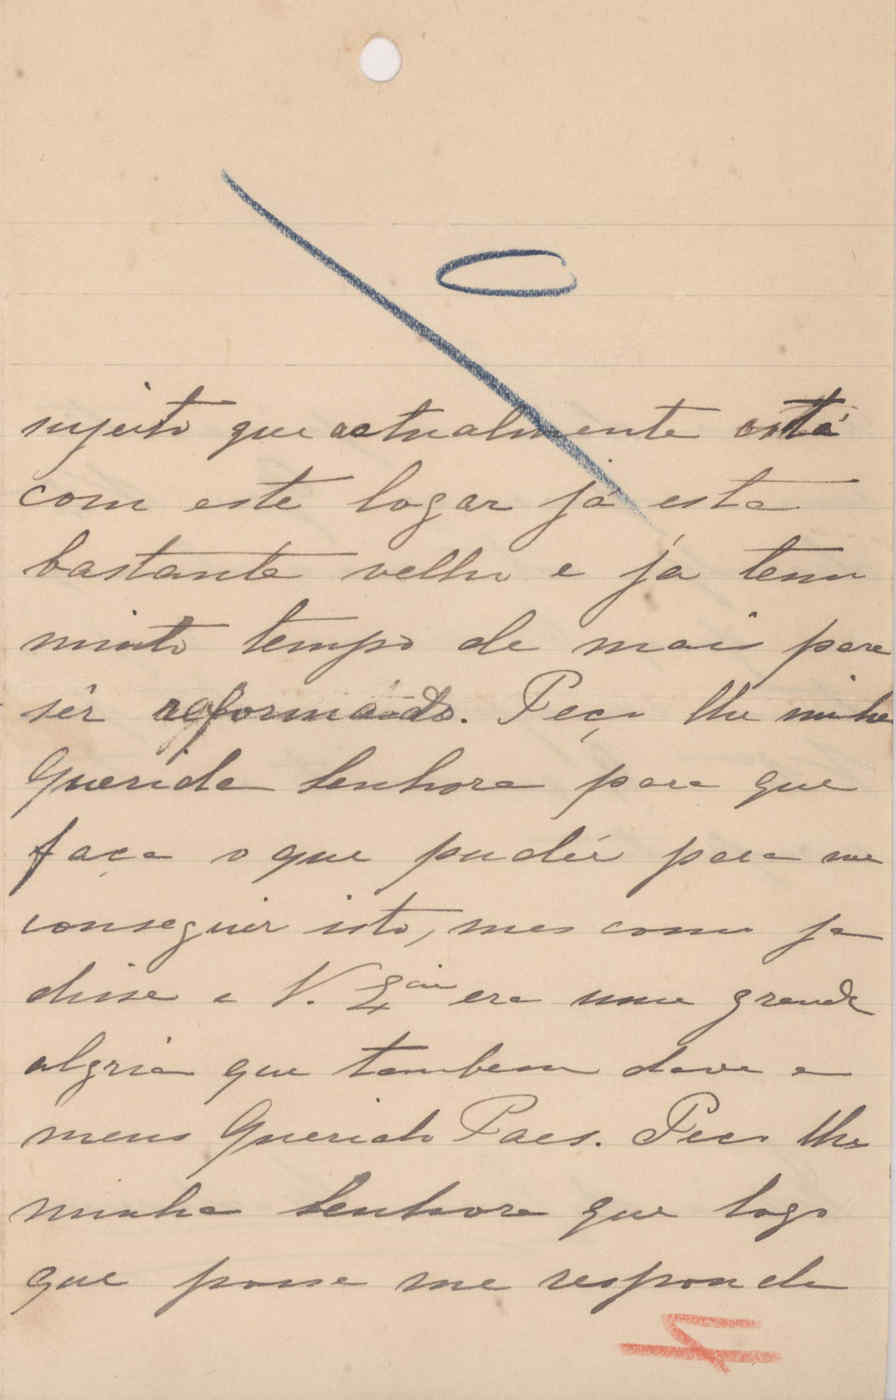 sujeito que actualmente está
com este logar já esta
bastante velho e já tem
muito tempo de mais para
sêr reformado. Peço lhe minha
Querida Senhora para que
faça o que pudér para me
conseguir isto, mas como ja
disse a V. Ex.cia era uma grande
algria que tambem dava a
meus Querido Paes. Peço lhe
minha Senhora que logo
que possa me responda